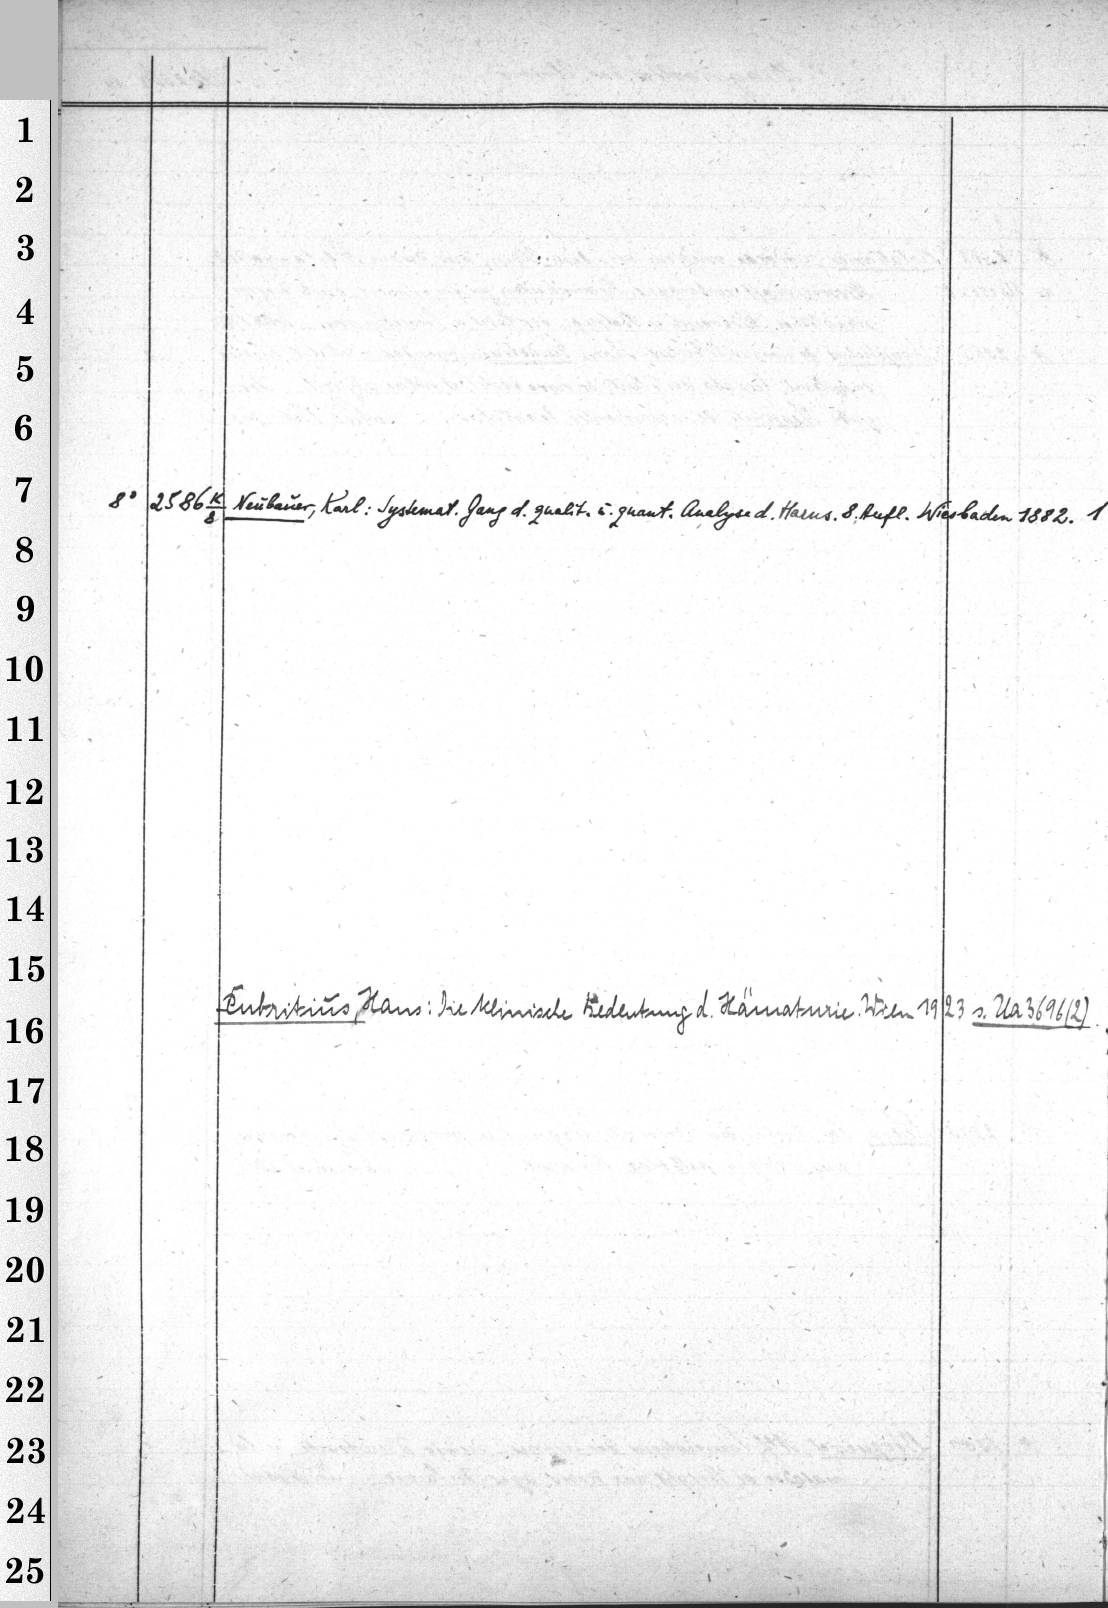 1
2
3
4
5
6
7
8° 2586 K/8 Neŭbaŭer, Karl: Systemat. Gang d. qualit. ŭ. quant. Analyse d. Harns. 8. Aufl. Wiesbaden 1882. 1
8
9
10
11
12
13
14
15
Rubritiŭs, Hans: Die klinische Bedeutung d. Hämaturie. Wien 1923 s. Ua 3696(2)
16
17
18
19
20
21
22
23
24
25